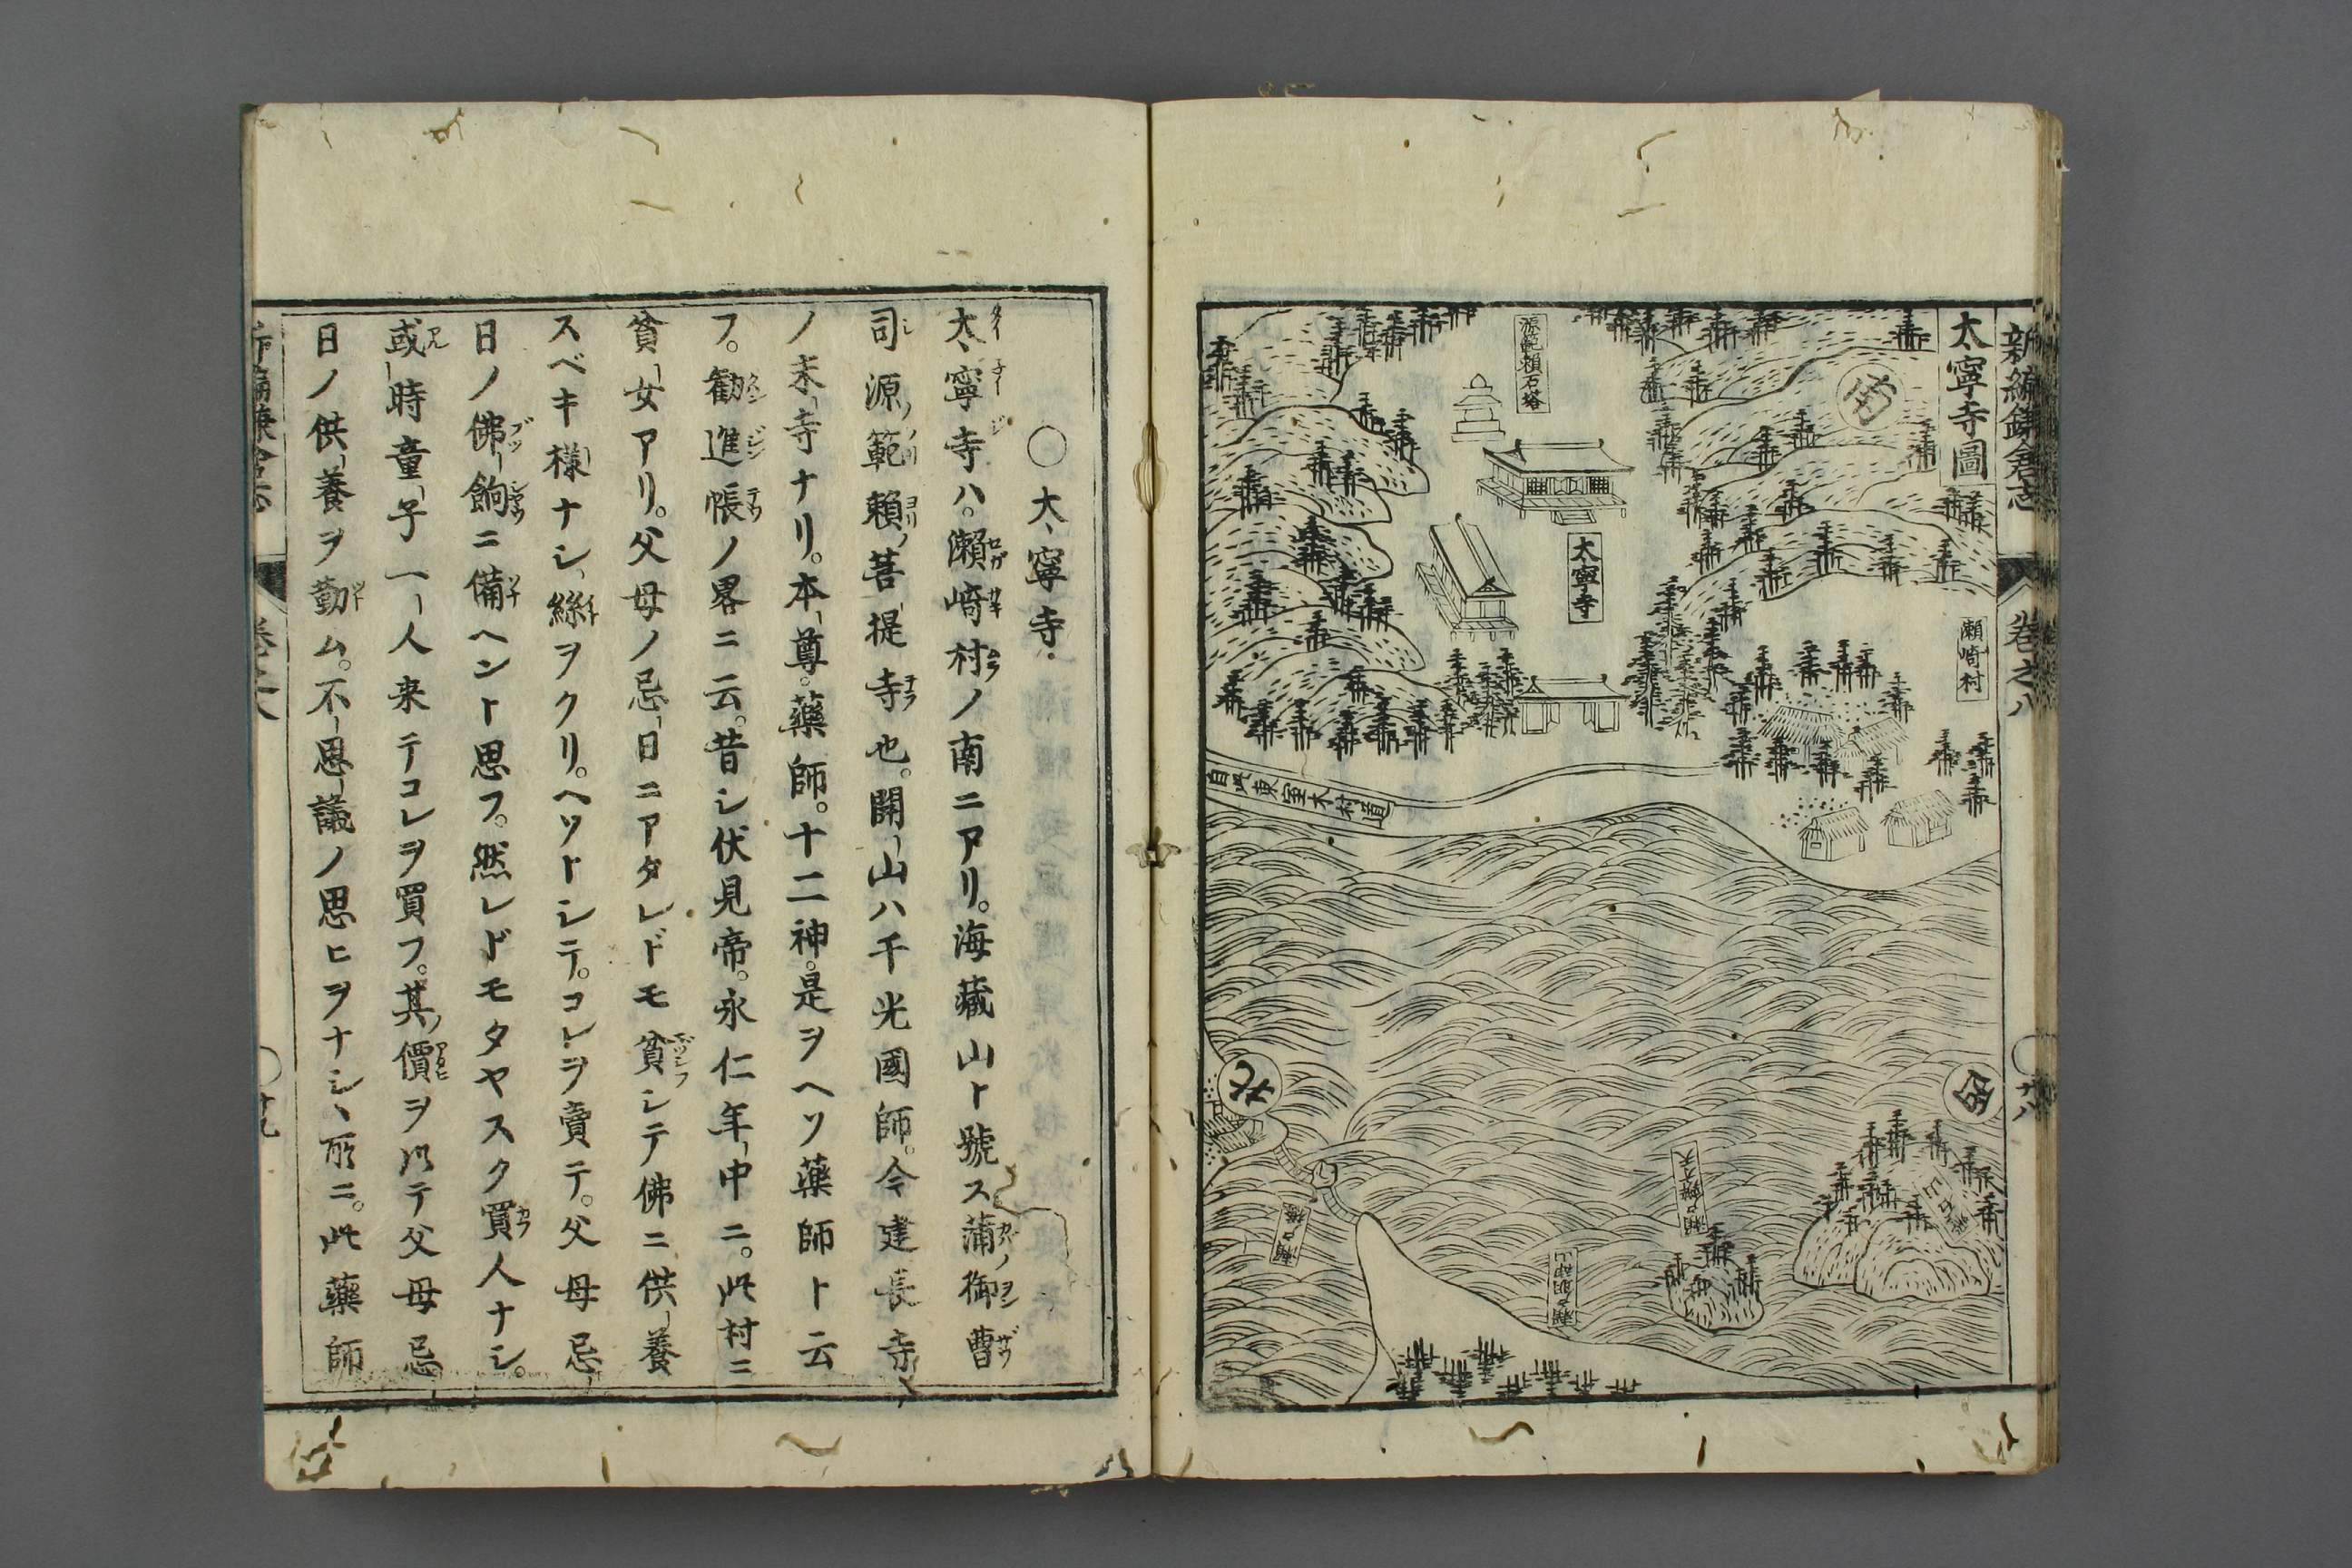 新編鎌倉志
卷之八
○廿八
太寧寺圖
南
源範頼石塔
太寧寺
瀬崎村
自此東室木村道
北
西
瀬戸橋
瀬戸明神
瀬戸辨才天
○太寧寺
太寧寺ハ。瀬崎村ノ南ニアリ。海藏山ト號ス蒲御曹
司源範頼ノ菩提寺也。開山ハ千光國師。今建長寺
ノ末寺ナリ。本尊。藥師。十二神。是ヲヘソ藥師ト云
フ。勸進帳ノ畧ニ云。昔シ伏見帝。永仁年中ニ。此村ニ
貧女アリ。父母ノ忌日ニアタレドモ貧シテ佛ニ供養
スベキ樣ナシ、絲ヲクリ。ヘソトシテ。コレヲ賣テ。父母忌
日ノ佛餉ニ備ヘント思フ。然レドモタヤスク買人ナシ。
或時童子一人来テコレヲ買フ。其價ヲ以テ父母忌
日ノ供養ヲ勤ム。不思議ノ思ヒヲナシ、所ニ。此藥師
新編鎌倉志
卷之八
○廿九